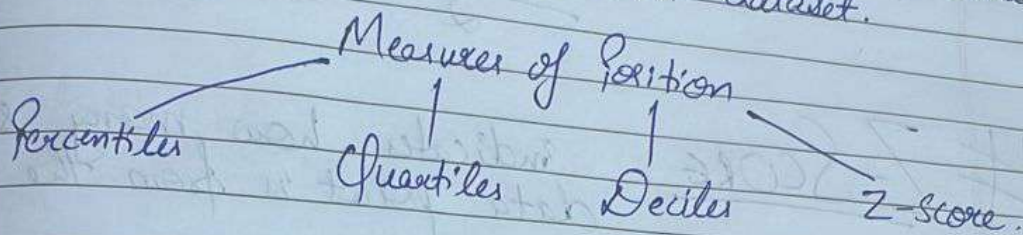 dataset.
Measures of Position
Percentiles
Quartiles
Deciles
Z-score.